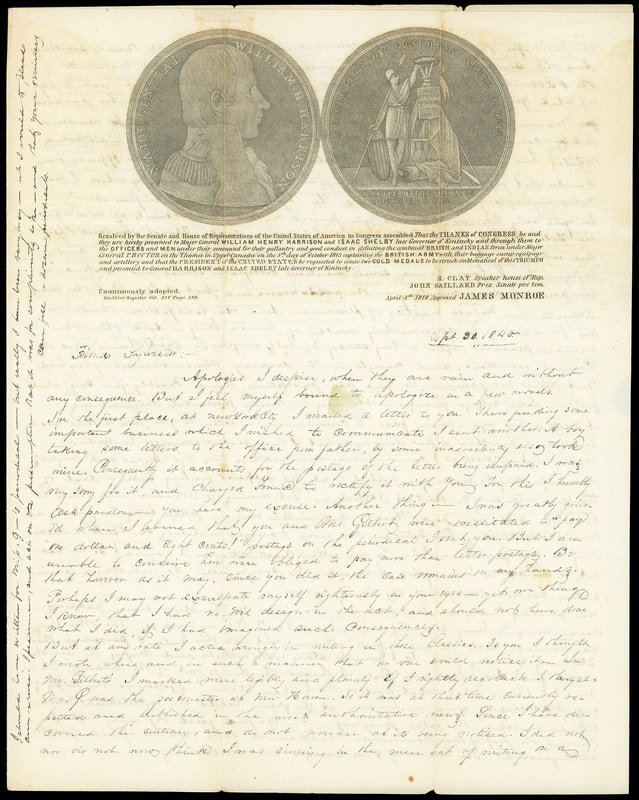 MAJOR GENERAL WILLIAM H. HARRISON
RESOLUTION OF CONGRESS APRIL 4 1818
BATTLE OF THE THAMES
OCTOBER 5. 1813.
Resolved by the Senate and House of Representatives of the United States of America in Congress assembled That the THANKS of CONGRESS be and
they are hereby presented to Major General WILLIAM HENRY HARRISON and ISAAC SHELBY late Governor of Kentucky and through them to
the OFFICERS and MEN under their command for their gallantry and good conduct in defeating the combined BRITISH and INDIAN forces under Major
General PROCTOR on the Thames in Upper Canada on the 5th day of October 1813 capturing the BRITISH ARMY with their baggage camp equipage
and artillery and that the PRESIDENT of the UNITED STATES be requested to cause two GOLD MEDALS to be struck emblematical of this TRIUMPH
and presented to General HARRISON and ISAAC SHELBY late Governor of Kentucky.
H. CLAY Speaker house of Rep.
Unanimously adopted.
JOHN GAILLARD Pres. Senate pro tem.
See Niles Register Vol. XIV Page
April 4th 1818 Approved JAMES MONROE
Sept. 30. 1840.
Friend Sylvester:-
Apologies I despise, when they are vain and without
any consequence. But I feel myself bound to apologize in a few words.
In the first place, at New York City I mailed a letter to you. Then finding some
important business which I wished to communicate I sent another. A boy
taking some letters to the office from father, by some inadvertency also took
mine. Consequently it accounts for the postage of the letter being unpaid. I was
very sorry for it, and charged Frank to rectify it with you. For this I humbly
ask pardon - you have my excuse. Another thing - I was greatly griev-
ed when I learned that you and Mr. Gilbert were necessitated to "pay
one dollar and eight cents!" postage on the periodical I sent you. But I am
unable to conceive how were obliged to pay more than letter postage. Be
that however as it may, since you did it the case remains on my hands.
Perhaps I may not exculpate myself righteously in your eyes - yet one thing
I know, that I had no evil design in the act, and should not have done
what I did if I had imagined such consequences.
But at any rate I acted wrong in writing in those Classics. To you I thought
I wrote where and in such a manner that no one would notice it. In
Mr. Gilbert's I marked more legibly and plainly. If I rightly recollect I thought
Mr. G. was the postmaster at New Haven. So it was at that time currently re-
ported and published in the most authoritative news. Since I have dis-
covered the contrary, and do not wonder at its being noticed. I did not
nor do not now think I was sinning in the mere act of writing on a